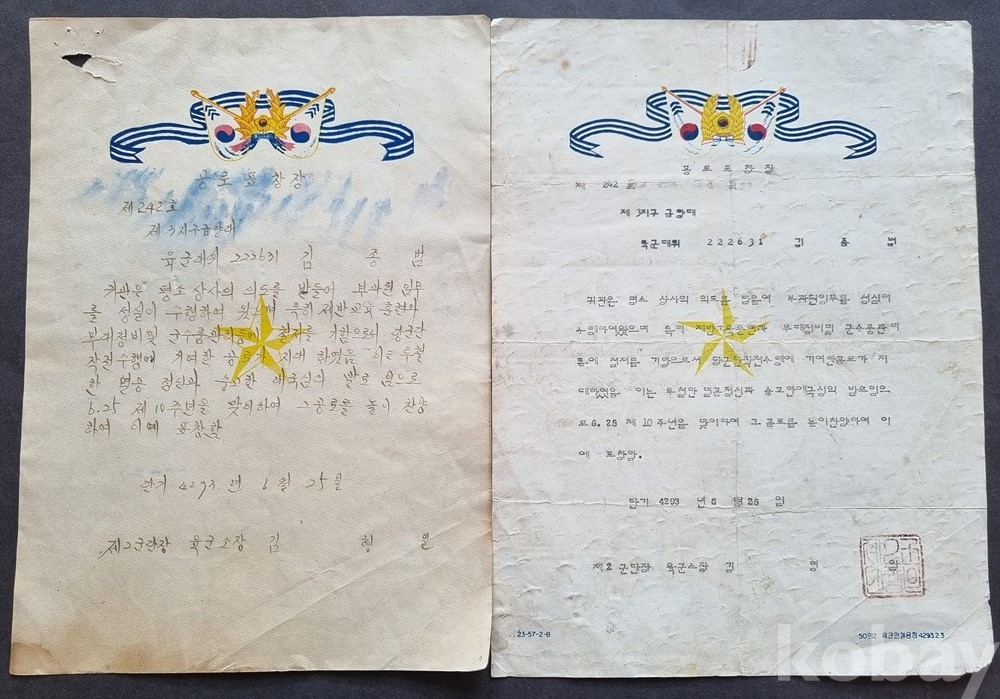 공로표창장
제242호
제3지구급양대
육군대위 222631 김 종 범
귀관은 평소 상사의 의도를 받들어 부과된 임무
를 성실이 수행하여 왔으며 특히 제반교육훈련과
부대정비및 군수품관리등에 철저를 기함으로서 당군단
작전수행에 기여한 공로가 지대 하였음 이는 투철
한 멸공 정신과 숭고한 애국심의 발로 임으로
6.25 제10주년을 맞이하여 그공로를 높이 찬양
하여 이에 표창함
단기 4293년 6월 25일
제2군단장 육군소장 김 형 일
공로표창장
제 242 호
제 3지구 급양대
육군대위 222631 김 종 범
귀관은 평소 상사의 의도를 받들어 부과된임무를 성실이
수행하여왔으며 특히 제반교육훈련과 부대정비및 군수품관리
등에 철저를 기함으로서 당군단작전수행에 기여한공로가 지
대하였음 이는 투철한 멸공정신과 숭고한애국심의 발로임으
로 6.25 제 10주년을 맞이하여 그 공로를 높이찬양하여 이
에 표창함.
단기 4293 년 6 월 25 일
제2 군단장 육군소장 김 형 일
23-57-2-B
4293.2.3
kobay